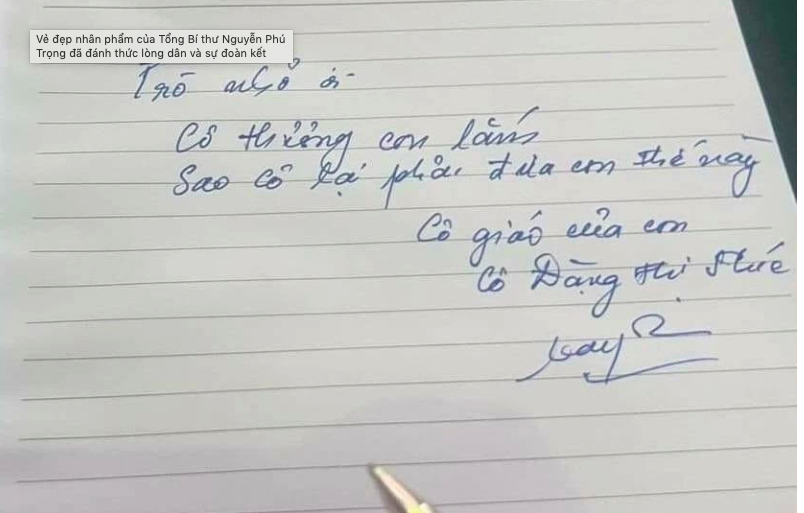 Vẻ đẹp nhân phẩm của Tổng Bí thư Nguyễn Phú
Trọng đã đánh thức lòng dân và sự đoàn kết
Trò nhỏ ơi
Cô thương con lắm
Sao cô lại phải đưa con thế này
Cô giáo của con
Cô Đặng Thị Phúc